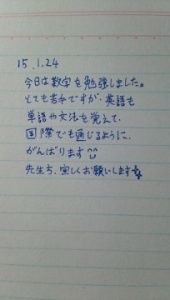 15.1.24
今日は数学を勉強しました。
とても苦手ですが、英語も
単語や文法を覚えて、
国際でも通じるように、
がんばります
先生も、宜しくお願いします